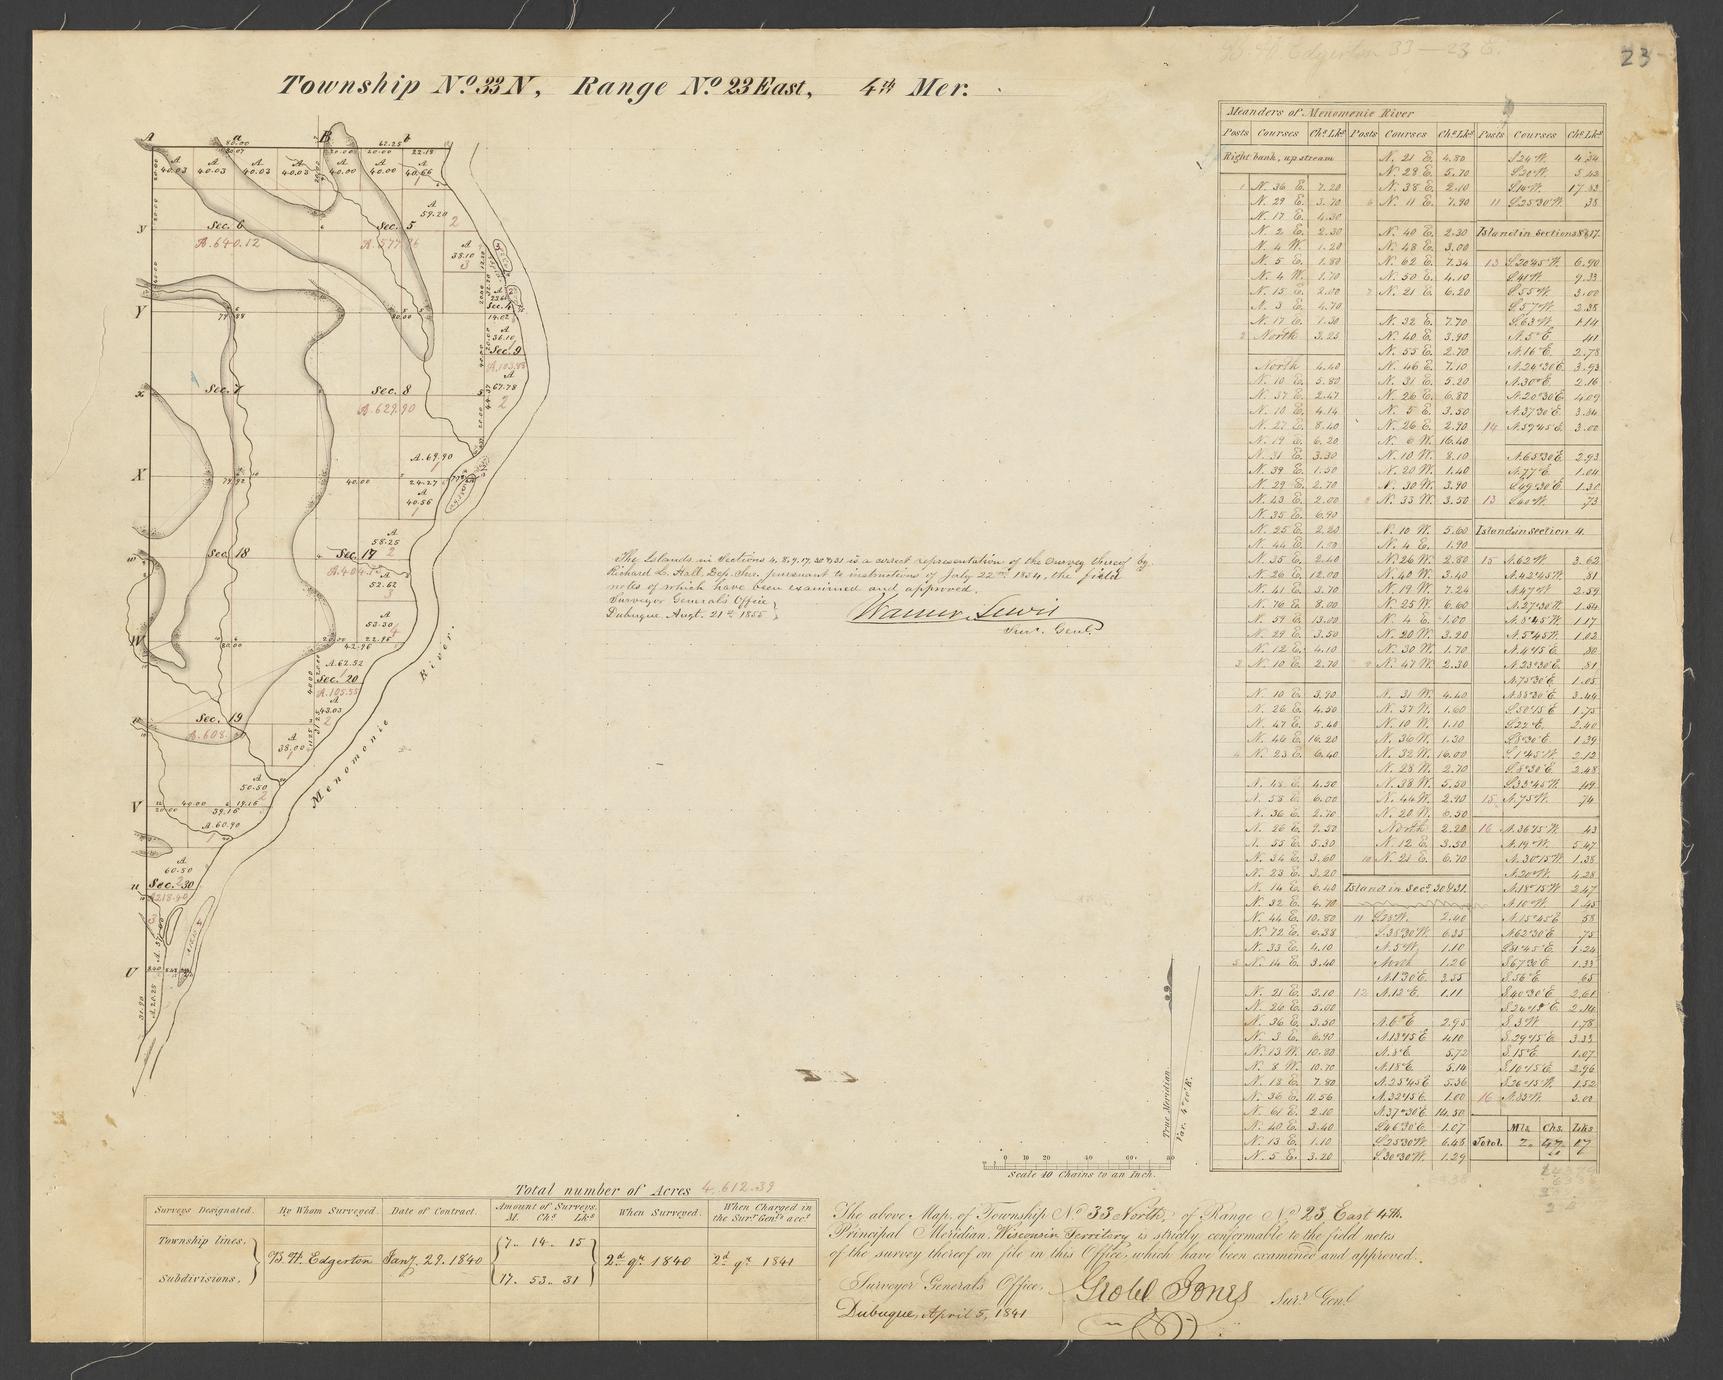 B. W. Edgerton 33 — 23 E.
23
Township No. 33 N, Range No. 23 East, 4th Mer.
A a B b
80.00 62.25
80.07 20.00 20.00 22.18
A 40.03
A 40.03
A 40.03
A 40.03
A 40.00
A 40.00
A 40.66
1
A 59.20
2
Sec. 6
A. 640.12
Sec. 5
y
A 38.10
3
Sec. 4
14.02
Y
A 36.10
Sec. 9
A 67.78
2
Sec. 7
Sec. 8
A. 629.90
x
A. 69.90
1
X
40.00 24.27
A 40.56
1
A 58.25
Sec. 18
Sec. 17 2
A 52.62
3
A 53.30
4
W
80.00 20.00 22.96
42.96
A. 62.52
Sec. 20
A. 105.55
A 43.03
2
Sec. 19
A. 608.
A 38.00
1
A 50.50
2
V
40.00 19.16
20.00 59.16
A. 60.90
1
A 60.50
Sec. 30
A 218.40
3
u
U
A. 20.25
31.90
Menomonie River.
The Islands in Sections 4, 8, 9, 17, 30 & 31 is a correct representation of the survey thereof by
Richard L. Hall, Dep. Sur. pursuant to instructions of July 22nd 1854, the field
notes of which have been examined and approved.
Surveyor General's Office
Dubuque, Augt. 21st 1855
Warner Lewis
Surr. Genl.
True Meridian.
Var. 4°00' E.
0 20 40 60 80
Scale 40 Chains to an Inch.
Meanders of Menomonie River
Posts Courses Chs. Lks. Posts Courses Chs. Lks. Posts Courses Chs. Lks.
Right bank, up stream
1 N. 36 E. 7.20
N. 29 E. 3.70
N. 17 E. 4.30
N. 2 E. 2.30
N. 4 W. 1.20
N. 5 E. 1.80
N. 4 W. 1.70
N. 15 E. 2.00
N. 3 E. 4.70
N. 17 E. 1.30
2 North 3.25
North 4.40
N. 10 E. 5.80
N. 37 E. 2.47
N. 10 E. 4.14
N. 27 E. 8.40
N. 19 E. 6.20
N. 31 E. 3.30
N. 39 E. 1.50
N. 29 E. 2.70
N. 43 E. 2.00
N. 35 E. 6.90
N. 25 E. 2.20
N. 44 E. 1.90
N. 35 E. 2.40
N. 26 E. 12.00
N. 41 E. 3.70
N. 76 E. 8.00
N. 59 E. 13.00
N. 29 E. 3.50
N. 12 E. 4.10
3 N. 10 E. 2.70
N. 10 E. 3.90
N. 26 E. 4.50
N. 47 E. 5.40
N. 46 E. 16.20
4 N. 23 E. 6.40
N. 48 E. 4.50
N. 58 E. 6.00
N. 36 E. 2.70
N. 26 E. 9.50
N. 55 E. 5.30
N. 34 E. 3.60
N. 23 E. 3.20
N. 14 E. 6.40
N. 32 E. 4.70
N. 44 E. 10.80
N. 72 E. 6.38
N. 33 E. 4.10
5 N. 14 E. 3.40
N. 21 E. 3.10
N. 26 E. 5.00
N. 36 E. 3.50
N. 3 E. 6.90
N. 13 W. 10.80
N. 8 W. 10.70
N. 18 E. 7.80
N. 36 E. 11.56
N. 61 E. 2.10
N. 40 E. 3.40
N. 13 E. 1.10
N. 5 E. 3.20
N. 21 E. 4.80
N. 29 E. 5.70
N. 38 E. 2.10
6 N. 11 E. 7.90
N. 40 E. 2.30
N. 48 E. 3.00
N. 62 E. 7.34
N. 50 E. 4.10
7 N. 21 E. 6.20
N. 32 E. 7.70
N. 40 E. 3.90
N. 55 E. 2.70
N. 46 E. 7.10
N. 31 E. 5.20
N. 26 E. 6.80
N. 5 E. 3.50
N. 26 E. 2.90
N. 6 W. 16.40
N. 10 W. 8.10
N. 20 W. 1.40
N. 30 W. 3.90
8 N. 33 W. 3.50
N. 10 W. 5.60
N. 4 E. 1.90
N. 26 W. 2.80
N. 40 W. 3.40
N. 19 W. 7.24
N. 25 W. 6.60
N. 4 E. 1.00
N. 20 W. 3.20
N. 30 W. 1.70
9 N. 47 W. 2.30
N. 31 W. 4.40
N. 37 W. 1.60
N. 10 W. 1.10
N. 36 W. 1.30
N. 32 W. 16.00
N. 28 W. 2.70
N. 38 W. 5.50
N. 44 W. 2.90
N. 20 W. 6.50
North 2.20
N. 12 E. 3.50
10 N. 21 E. 6.70
Island in Secs. 30 & 31.
11 S. 23 W. 2.40
S. 38°30' W. 6.35
N. 5 W. 1.10
North 1.26
N. 1°30' E. 3.55
12 N. 12° E. 1.11
N. 6° E. 2.95
N. 13°15' E. 4.10
N. 8° E. 5.72
N. 18° E. 5.14
N. 25°45' E. 5.36
N. 32°15' E. 1.00
N. 37°30' E. 14.50
S. 46°30' E. 1.07
S. 25°30' W. 6.48
S. 30°30' W. 1.29
S. 24 W. 4.34
S. 20° W. 5.42
S. 14° W. 17.83
11 S. 25°30' W. .38
Island in sections 8 & 17.
13 S. 20°45' W. 6.90
S. 41° W. 9.33
S. 55° W. 3.00
S. 57° W. 2.38
S. 63° W. 1.14
N. 5° E. .41
N. 16° E. 2.78
N. 24°30' E. 3.93
N. 30° E. 2.16
N. 20°30' E. 4.09
N. 37°30' E. 3.34
14 N. 59°45' E. 3.00
N. 65°30' E. 2.93
N. 77° E. 1.04
S. 49°30' E. 1.30
13 S. 40° W. .73
Island in section 4.
15 N. 62° W. 3.62
N. 42°45' W. .81
N. 47° W. 2.59
N. 27°30' W. 1.54
N. 8°45' W. 1.17
N. 5°45' W. 1.02
N. 4°15' E. .80
N. 23°30' E. .81
N. 75°30' E. 1.05
N. 88°30' E. 3.44
S. 50°15' E. 1.75
S. 22° E. 2.40
S. 8°30' E. 1.39
S. 1°45' W. 2.12
S. 8°30' E. 2.48
S. 33°45' W. 1.19
15 N. 75° W. .74
16 N. 36°15' W. .43
N. 19° W. 5.47
N. 30°15' W. 1.38
N. 20° W. 4.28
N. 18°15' W. 2.47
N. 10° W. 1.45
N. 15°45' E. .58
N. 62°30' E. .75
S. 81°45' E. 1.24
S. 67°30' E. 1.33
S. 56° E. .65
S. 40°30' E. 2.61
S. 24°15' E. 2.14
S. 3° W. 1.78
S. 29°15' E. 3.33
S. 15° E. 1.07
S. 10°15' E. 2.96
S. 26°15' W. 1.52
16 N. 83° W. 3.00
Mls. Chs. Lks.
Total. 7. 47. 17
Total number of Acres 4,612.39
Surveys Designated. By Whom Surveyed. Date of Contract. Amount of Surveys. M. Chs. Lks. When Surveyed. When Charged in the Surr. Genl's acct.
Township lines. 7. 14. 15
B. W. Edgerton Jany. 29. 1840 2d qr. 1840 2d qr. 1841
Subdivisions. 17. 53. 31
The above Map of Township No 33 North, of Range No 23 East 4th.
Principal Meridian, Wisconsin Territory is strictly conformable to the field notes
of the survey thereof on file in this Office, which have been examined and approved.
Surveyor General's Office,
Dubuque, April 5, 1841
Geo W. Jones Surr. Genl.